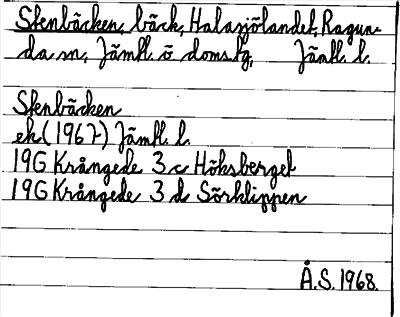 Stenbäcken, bäck, Halasjölandet, Ragun-
da sn, Jämtl. ö domsfg, Jämtl. l.
Stenbäcken
ek (1967) Jämtl. l.
19G Krångede 3 c Höksberget
19G Krångede 3 d Sörklippen
Å.S. 1968.